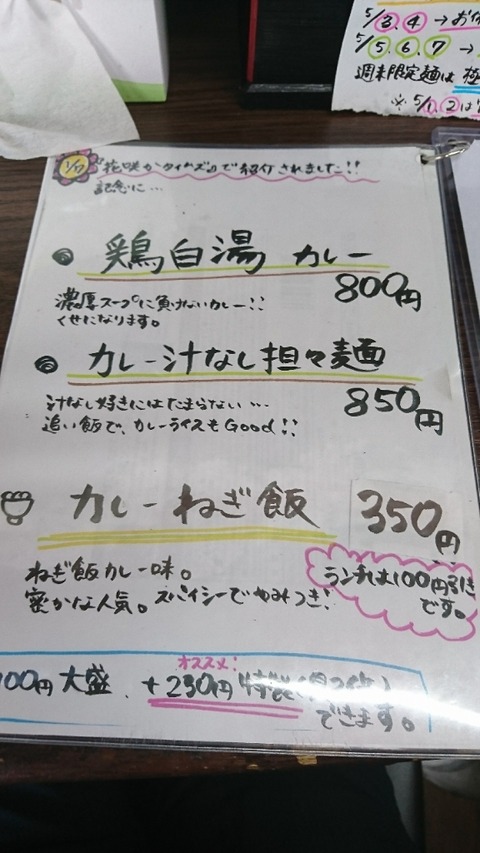 5/3,4→お休
5/5,6,7→
週末限定麺は 極
※5/1,2は
1/17 『花咲かタイムズ』で紹介されました!!
記念に…
鶏白湯 カレー
800円
濃厚スープに負けないカレー!!
くせになります。
カレー汁なし担々麺
850円
汁なし好きにはたまらない…
追い飯で、カレーライスもGood!!
カレーねぎ飯
350円
ねぎ飯カレー味。
密かな人気。スパイシーでやみつき!
ランチは100円引き
です。
オススメ!
100円 大盛、+230円 特製
できます。